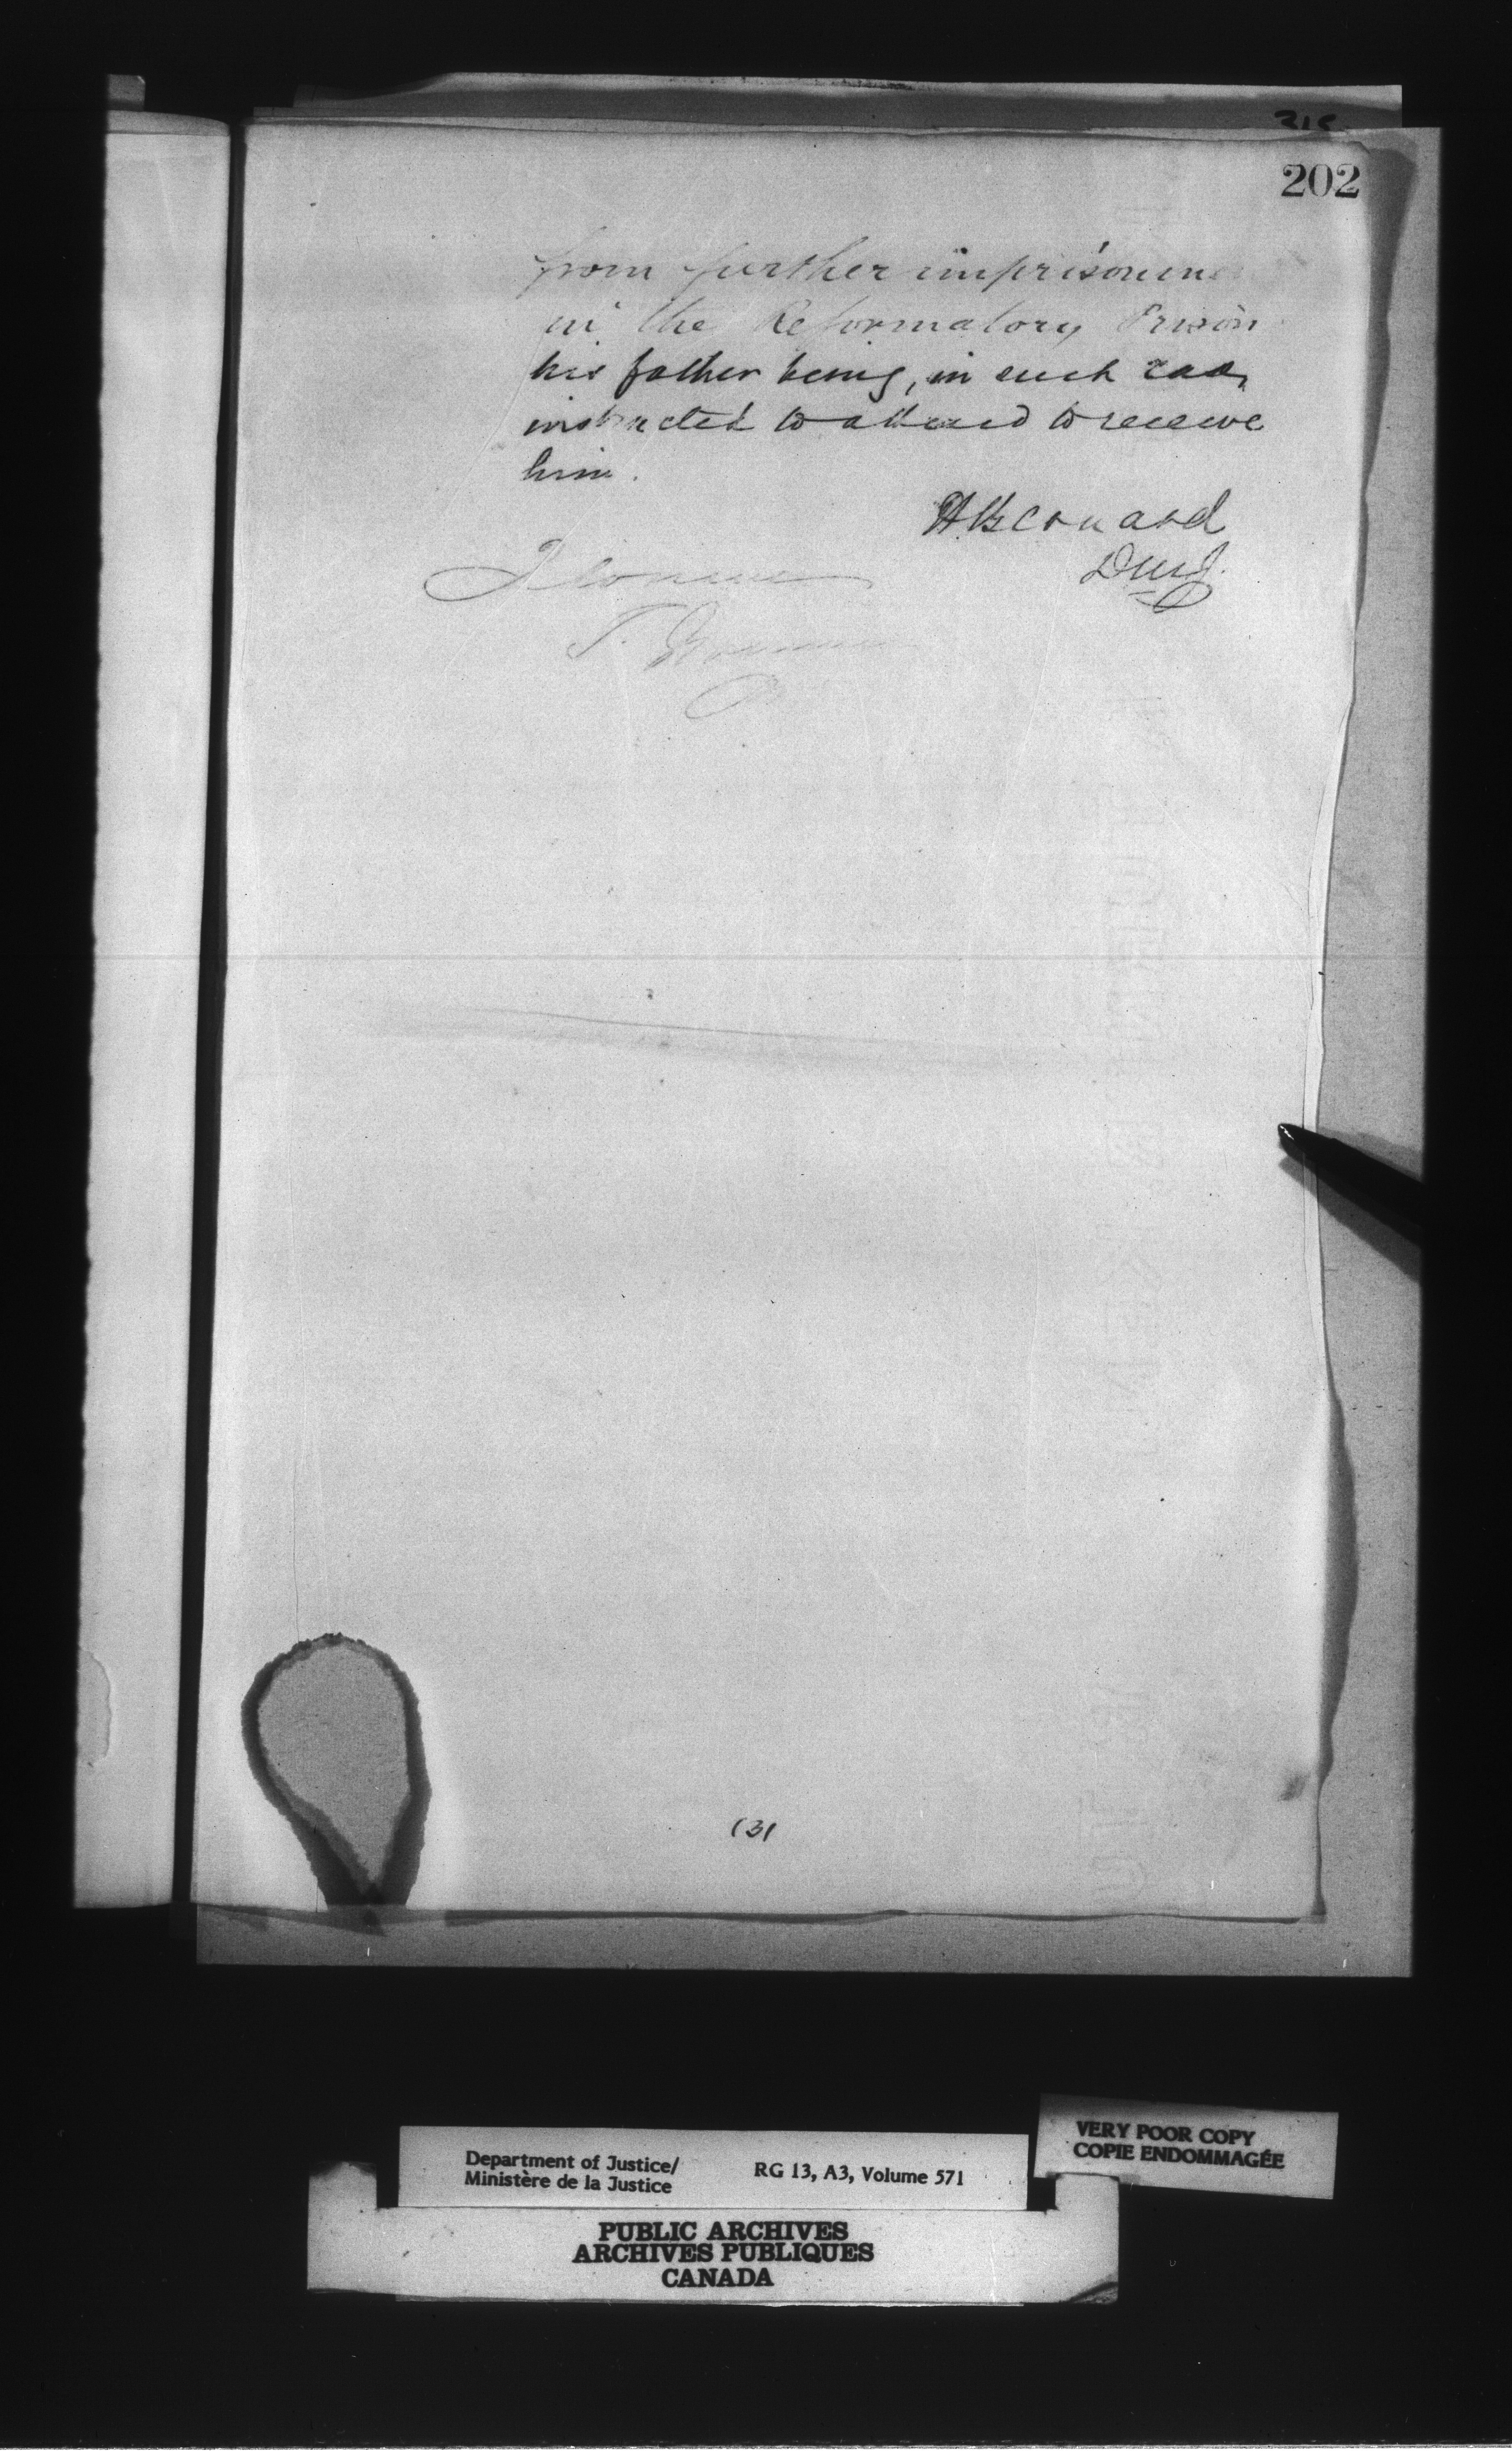 202
from further imprisonm
in the Reformatory Prison
his father being, in such case,
instructed to attend to receive
him.
H Bernard
DMJ.
I concur
T.
(3)
Department of Justice/
Ministère de la Justice
RG 13, A3, Volume 571
VERY POOR COPY
COPIE ENDOMMAGÉE
PUBLIC ARCHIVES
ARCHIVES PUBLIQUES
CANADA